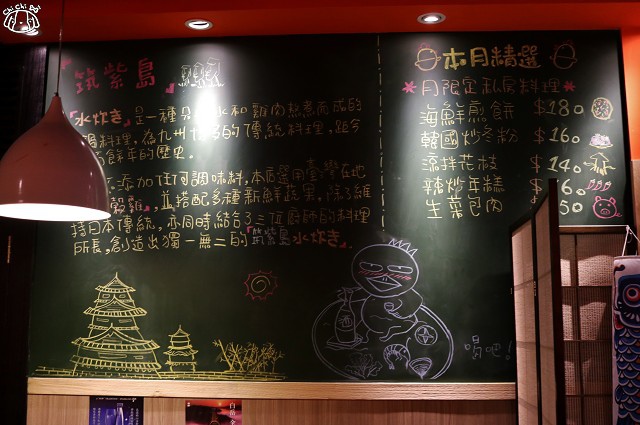 Chi Chi Bo
筑紫島
「水炊き」是一種
水和雞肉熬煮而成的
鍋料理,為九州博多的傳統料理,距今
餘年的歷史。
添加任何調味料,本店選用臺灣在地
穀雞,並搭配多種新鮮蔬果,除了維
持日本傳統,亦同時結合了三位廚師的料理
所長,創造出獨一無二的「筑紫島水炊き」。
本月精選
*月限定私房料理*
海鮮煎餅 $180
韓國炒冬粉 $160
涼拌花枝 $140
辣炒年糕 $160
生菜包肉 50
喝吧!